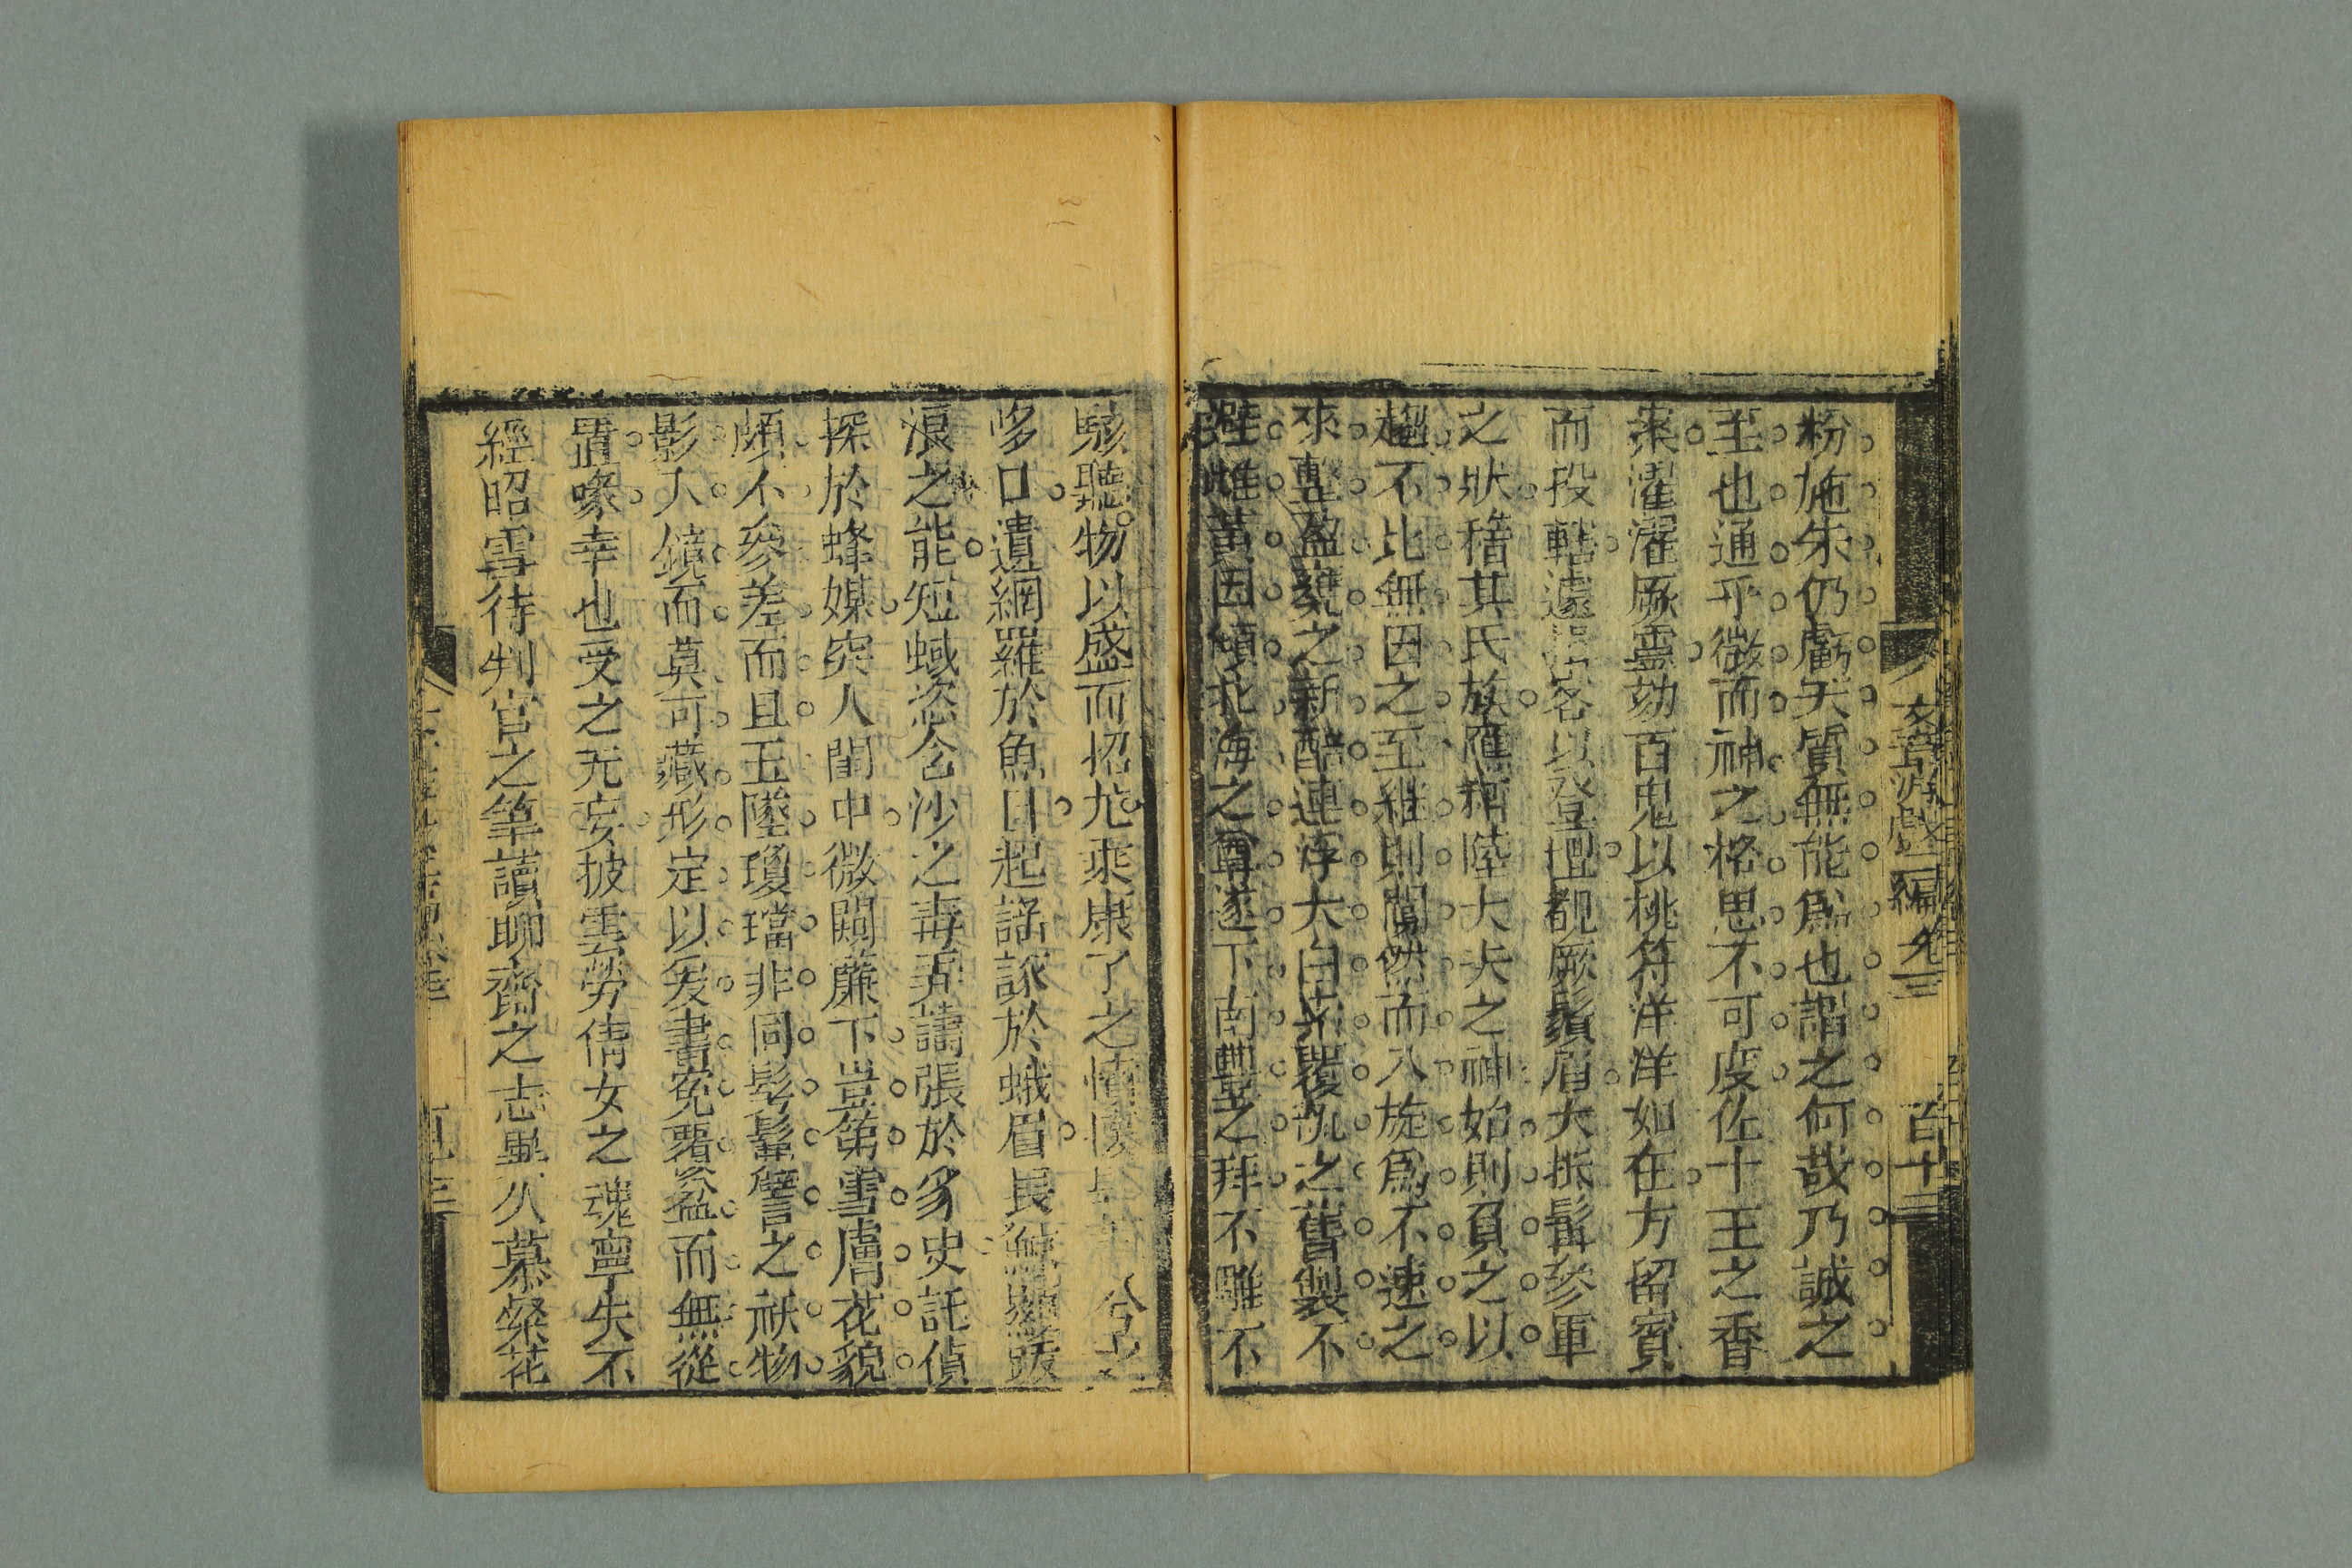 文章游戲二編卷三
百十三
粉施朱仍虧天質無能爲也謂之何哉乃誠之
至也通乎微而神之格思不可度佐十王之香
案濯濯厥靈効百鬼以桃符洋洋如在方留賓
而投轄遠客以登壇覩厥鬚眉大抵髯參軍
之狀稽其氏族應稱陸大夫之神始則頁之以
趨不比無因之至繼則闖然而入旋爲不速之
來罄盎甕之新醅連浮大白覆瓿之舊製不
雌黃因傾北海之尊遂下南豐之拜不雕不
駭聽物以盛而招尤乘康了之
哆口遺網羅於魚目起謠諑於蛾眉長鯨
浪之能短蜮恣含沙之毒弄譸張於豸史託偵
探於蜂媒突人閨中微闚簾下豈第雪膚花貌
頗不參差而且玉墜瓊璫非同髣髴譬之祅物
影入鏡而莫可藏形定以爰書冤覆盆而無從
置喙幸也受之无妄披雲勞倩女之魂寧失不
經昭雪待判官之筆讀聊齋之志異久慕粲花